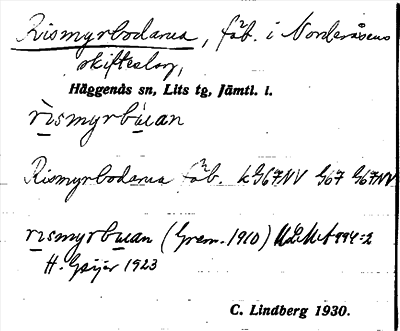 Rismyrbodarna, fäb. i Norderåsens
skifteslag,
Häggenås sn, Lits tg, Jämtl. l.
rìsmyrbúan
Rismyrbodarna fäb. k G67NV G67 G67NV
rismyrbuan (Grem. 1910) ULMA 994:2
H. Geijer 1923
C. Lindberg 1930.